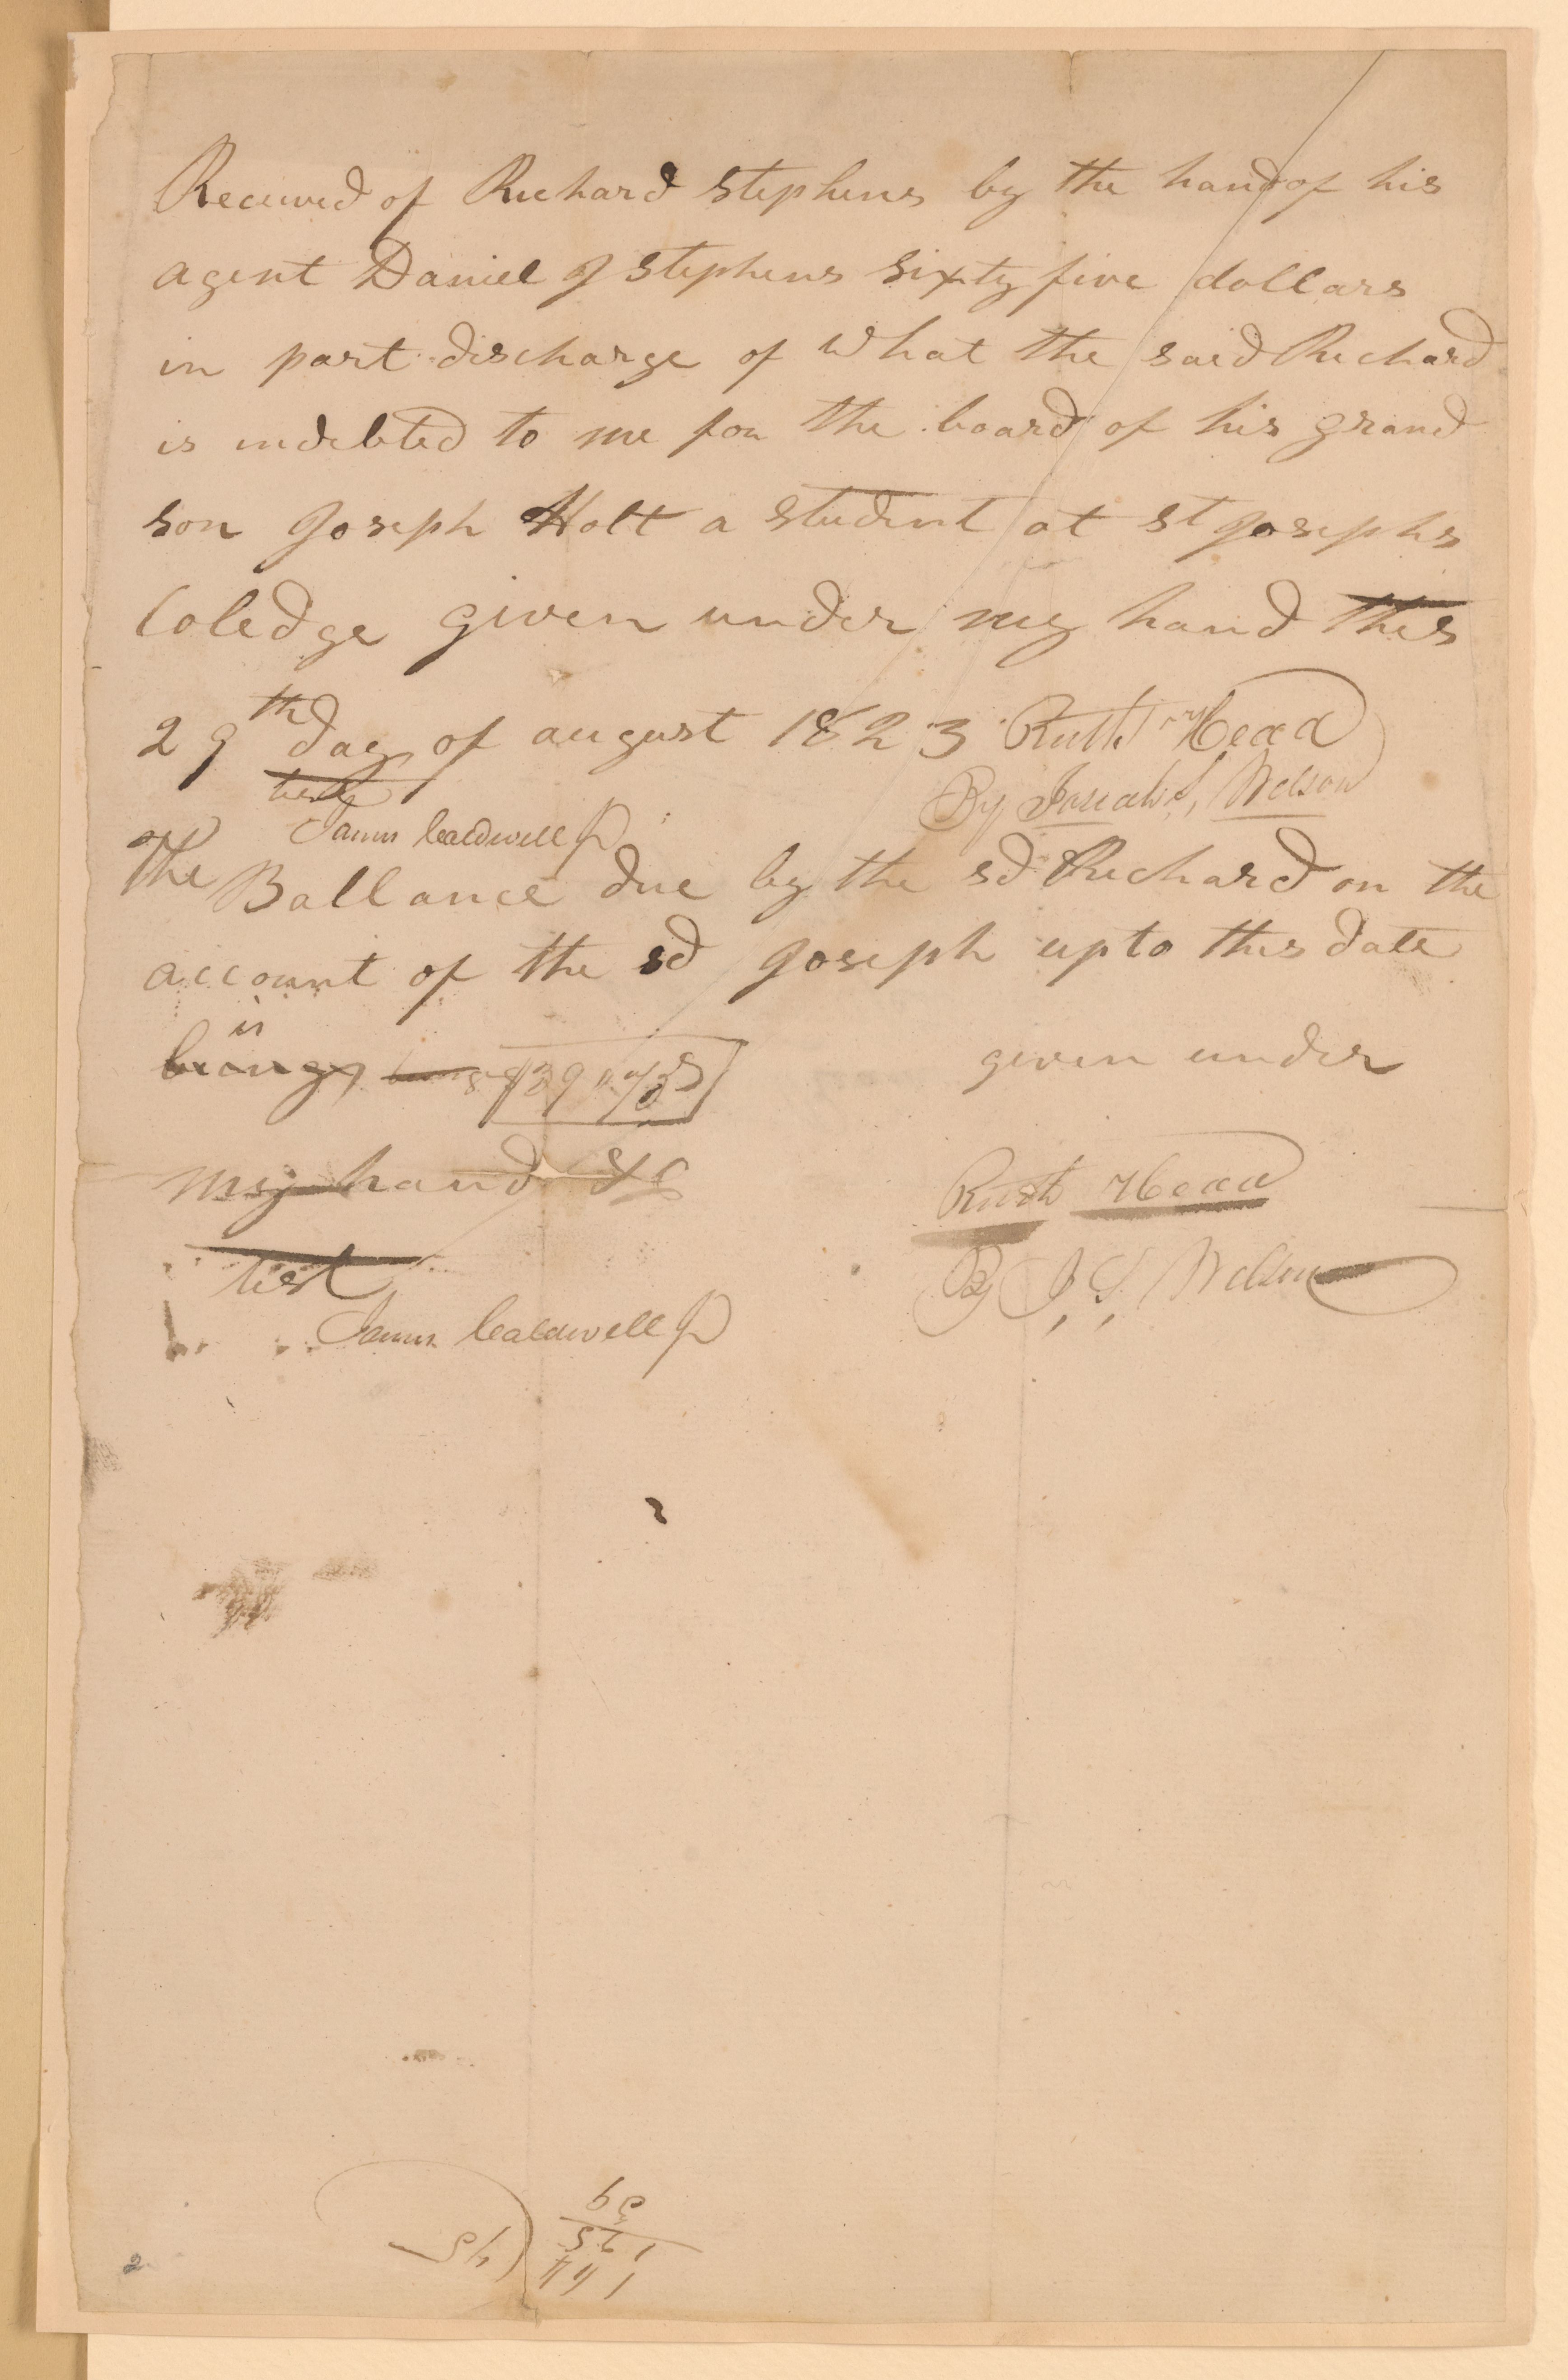 Received of Richard Stephens by the hand of his
agent Daniel J Stephens Sixty five dollars
in part discharge of what the said Richard
is indebted to me for the board of his grand
son Joseph Holt a student at St Josephs
Coledge given under my hand this
29th day of august 1823 Ruth Head
teste By Josiah S, Wilson
James Caldwell P
The Ballance due by the sd Richard on the
account of the sd Joseph up to this date
is
being given under
my hand &c Ruth Head
test By J, S, Wilson
James Caldwell P
39
195
144
2